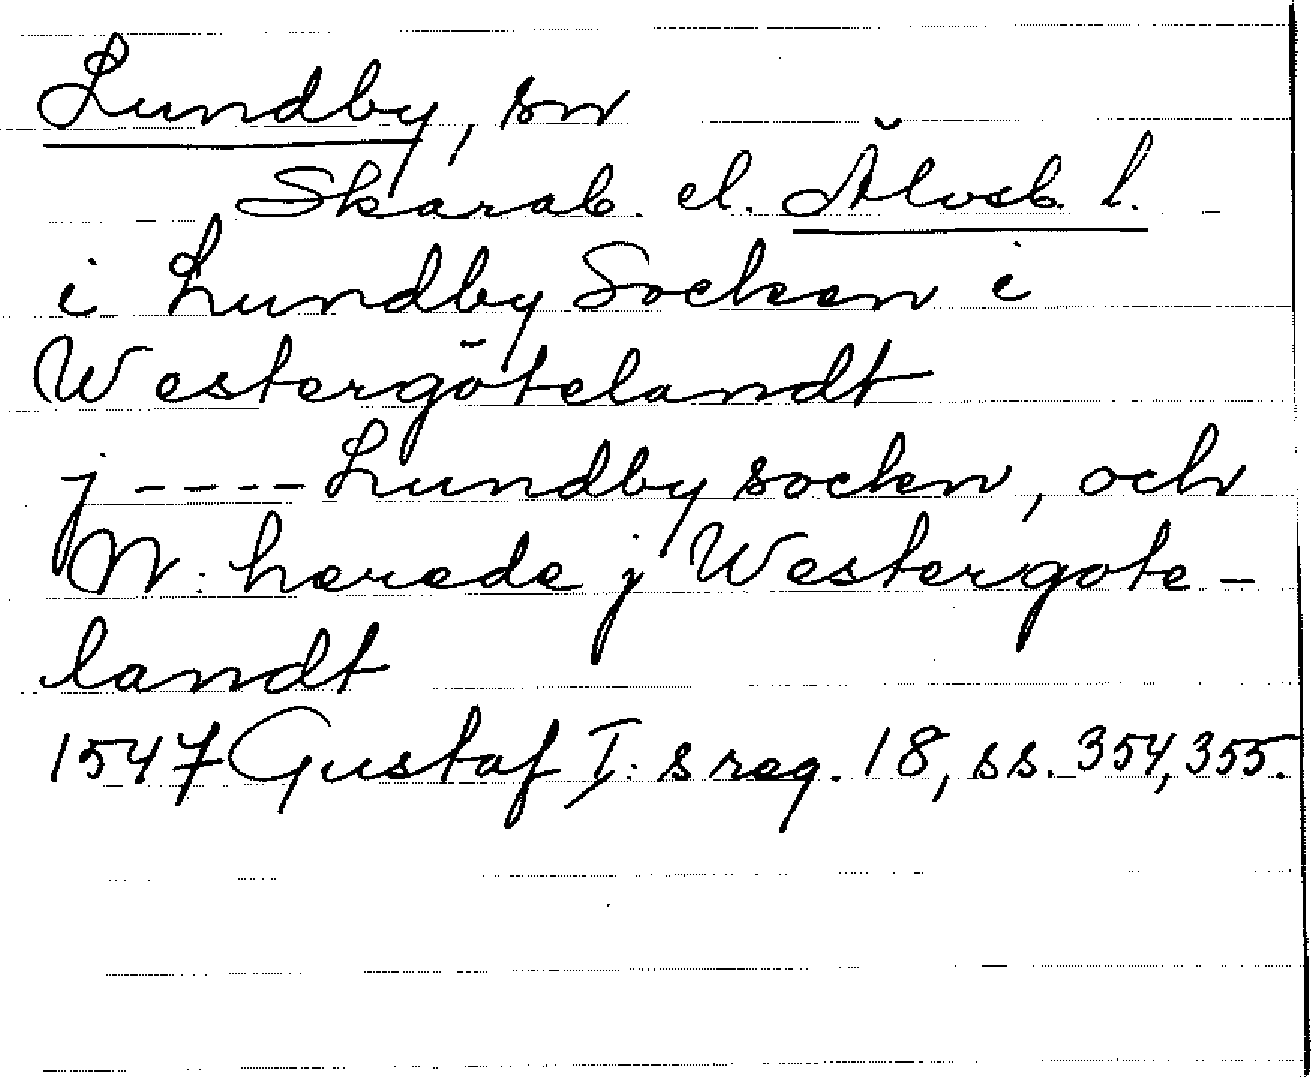 Lundby, sn
Skarab. el. Älvsb. l.
i Lundby Socken i
Westergötelandt
j ---- Lundby sockn, och
N. herede j Westergote-
landt
1547 Gustaf I:s reg. 18, ss. 354, 355.